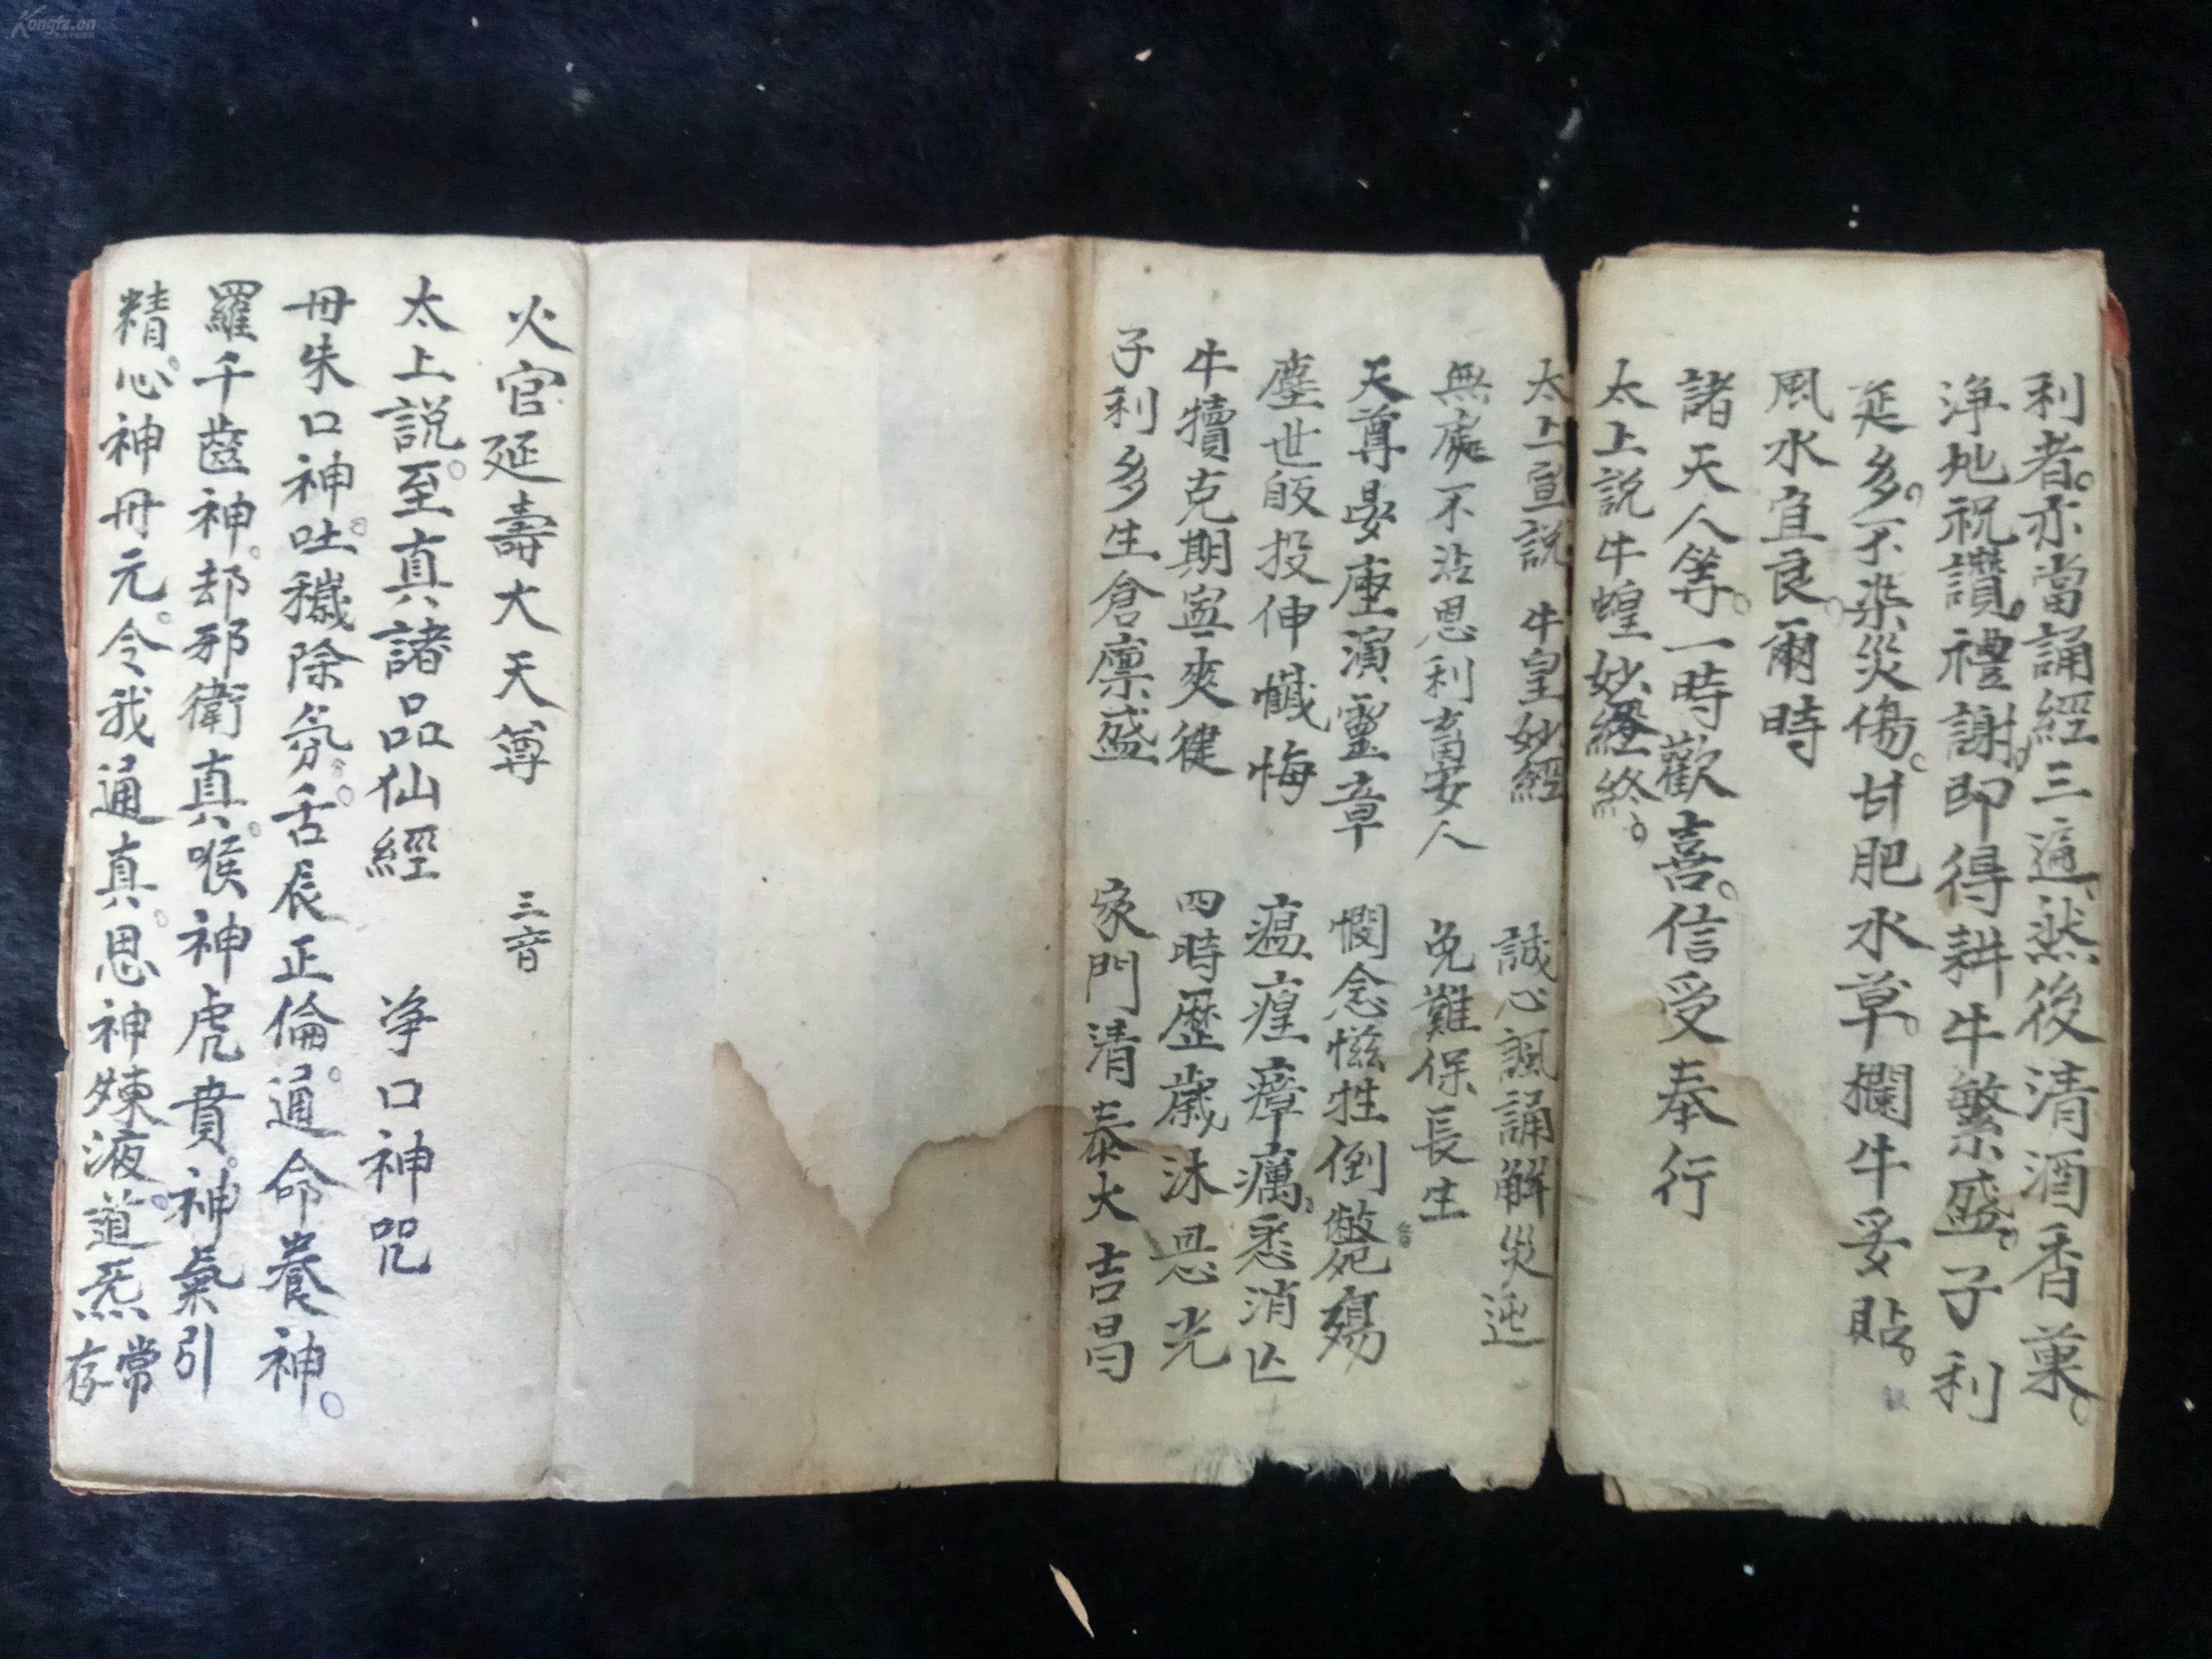 利者。亦當誦經三遍、然後清酒香菓。
淨地祝讚。禮謝。即得耕牛繁盛。子利
延多。不染災傷。甘肥水草。欄牛妥貼。
風水宜良。爾時
諸天人等。一時歡喜。信受奉行
太上説牛蝗妙經終。
太上宣説 牛皇妙經 誠心諷誦解災迍
無處不沾恩利畜安人 免難保長生
天尊晏座演靈章 憫念慈牲倒斃殤
塵世皈投伸懺悔 瘟瘽瘴癘。悉消亾
牛犢克期寔爽健 四時歷歲沐恩光
子利多生倉廪盛 家門清泰大吉昌
火官延壽大天尊 三音
太上説。至真諸品仙經 净口神咒
丹朱口神。吐穢除氛。舌辰正倫。通命養神。
羅千齒神。却邪衛真。喉神虎賁。神氣引
精。心神丹元。令我通真。思神煉液。道炁常存
Kongfz.cn